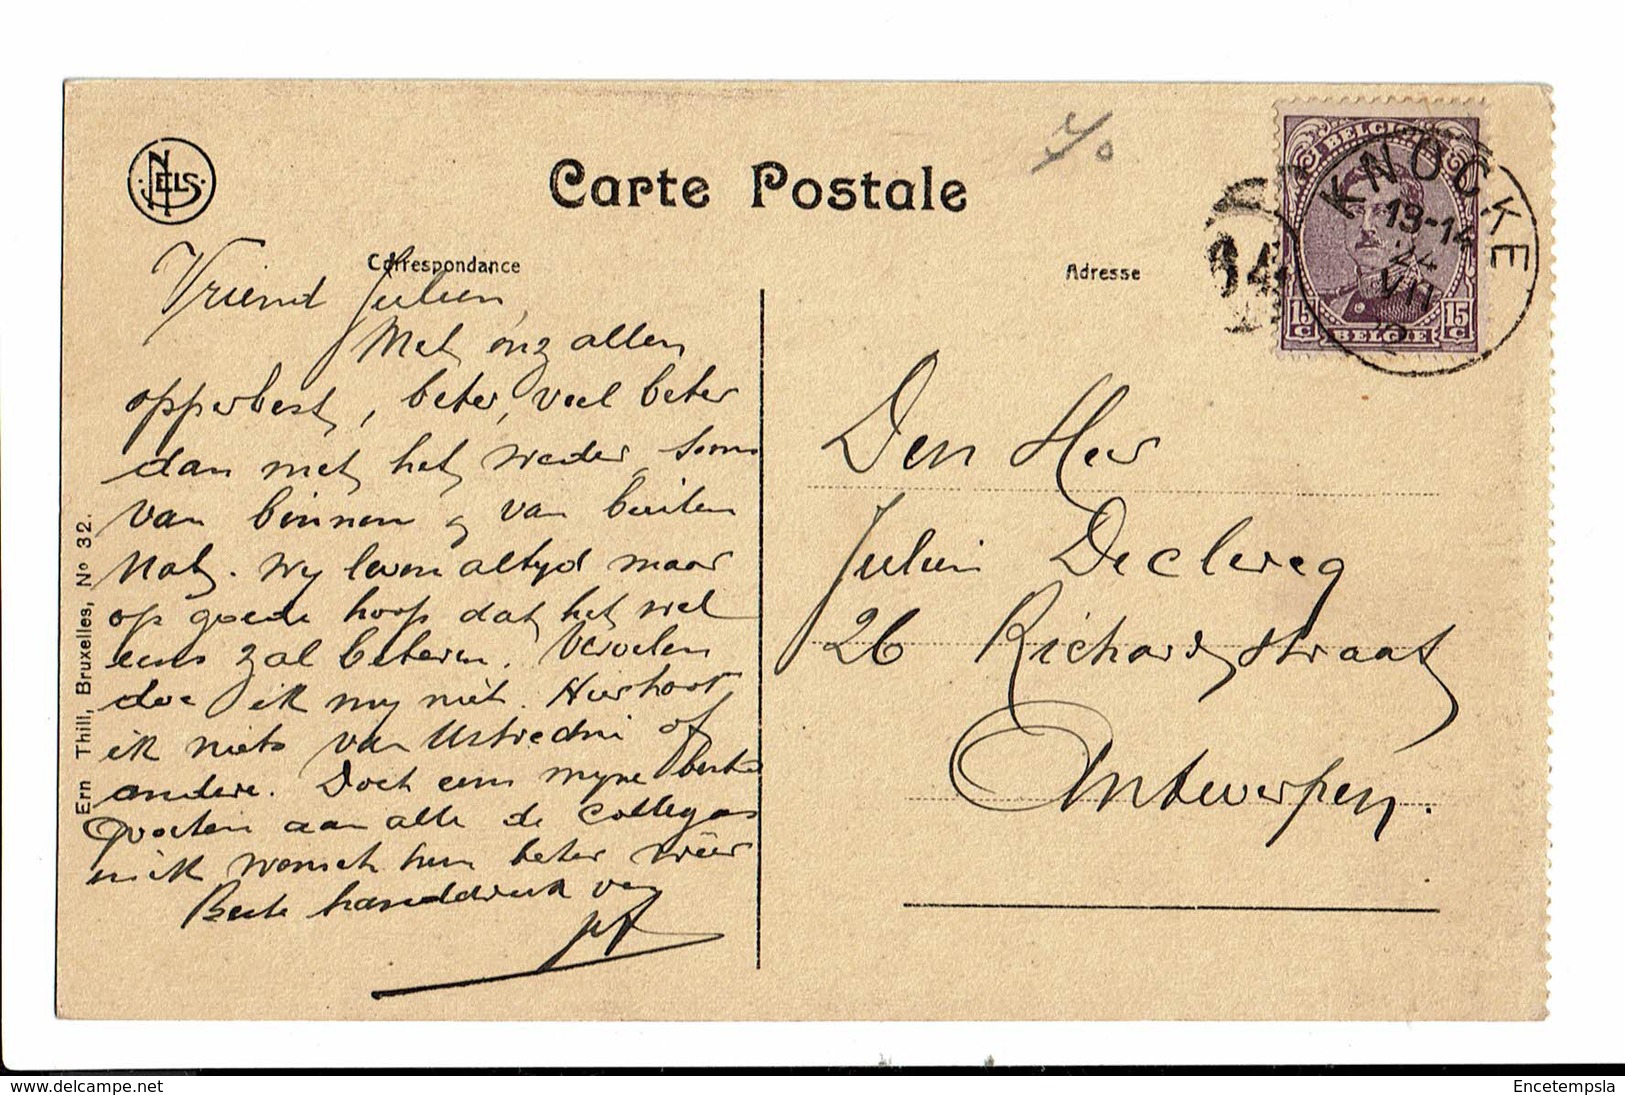 NELS
Carte Postale
Correspondance
Adresse
BELGIQUE
15 C BELGIE 15 C
KNOCKE
13-14
24
VII
Vriend Julien,
Met ons allen
opperbest, beter, veel beter
dan met het weder, soms
van binnen & van buiten
nat. Wy leven altyd maar
op goede hoop dat het wel
eens zal beteren. Vervelen
doe ik my niet. Hier hoor
ik niets van of
andere. Doch eens myne beste
groeten aan alle de collegas
en ik wensch hun beter weer
Beste handdruk van
Den Heer
Julien Declercq
26 Richardstraat
Antwerpen.
Ern Thill, Bruxelles, No 32.
delcampe.net
Encetempsla